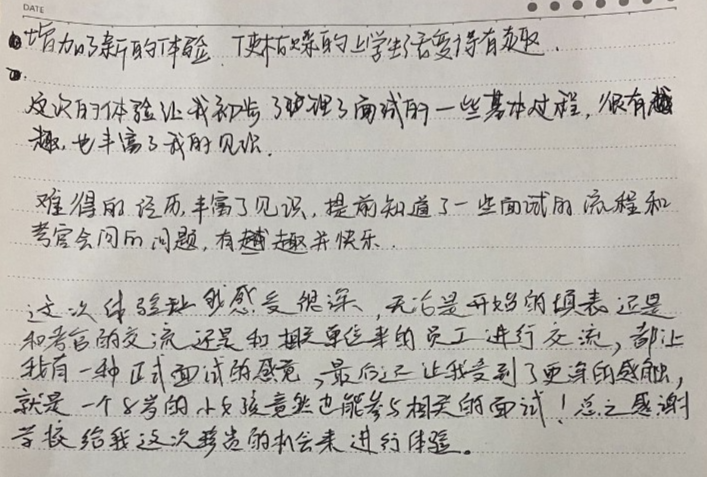 DATE
增加了新的体验 使枯燥的上学生活变得有趣.
这次的体验让我初步了解了面试的一些基本过程, 很有
趣, 也丰富了我的见识.
难得的经历, 丰富了见识, 提前知道了一些面试的流程和
考官会问的问题, 有趣并快乐.
这次体验让我感受很深, 无论是开始的填表还是
和考官的交流还是和相关单位来的员工进行交流, 都让
我有一种正式面试的感觉, 最后还让我受到了更深的感触,
就是一个8岁的小女孩竟然也能参与相关的面试! 总之感谢
学校给我这次珍贵的机会来进行体验。